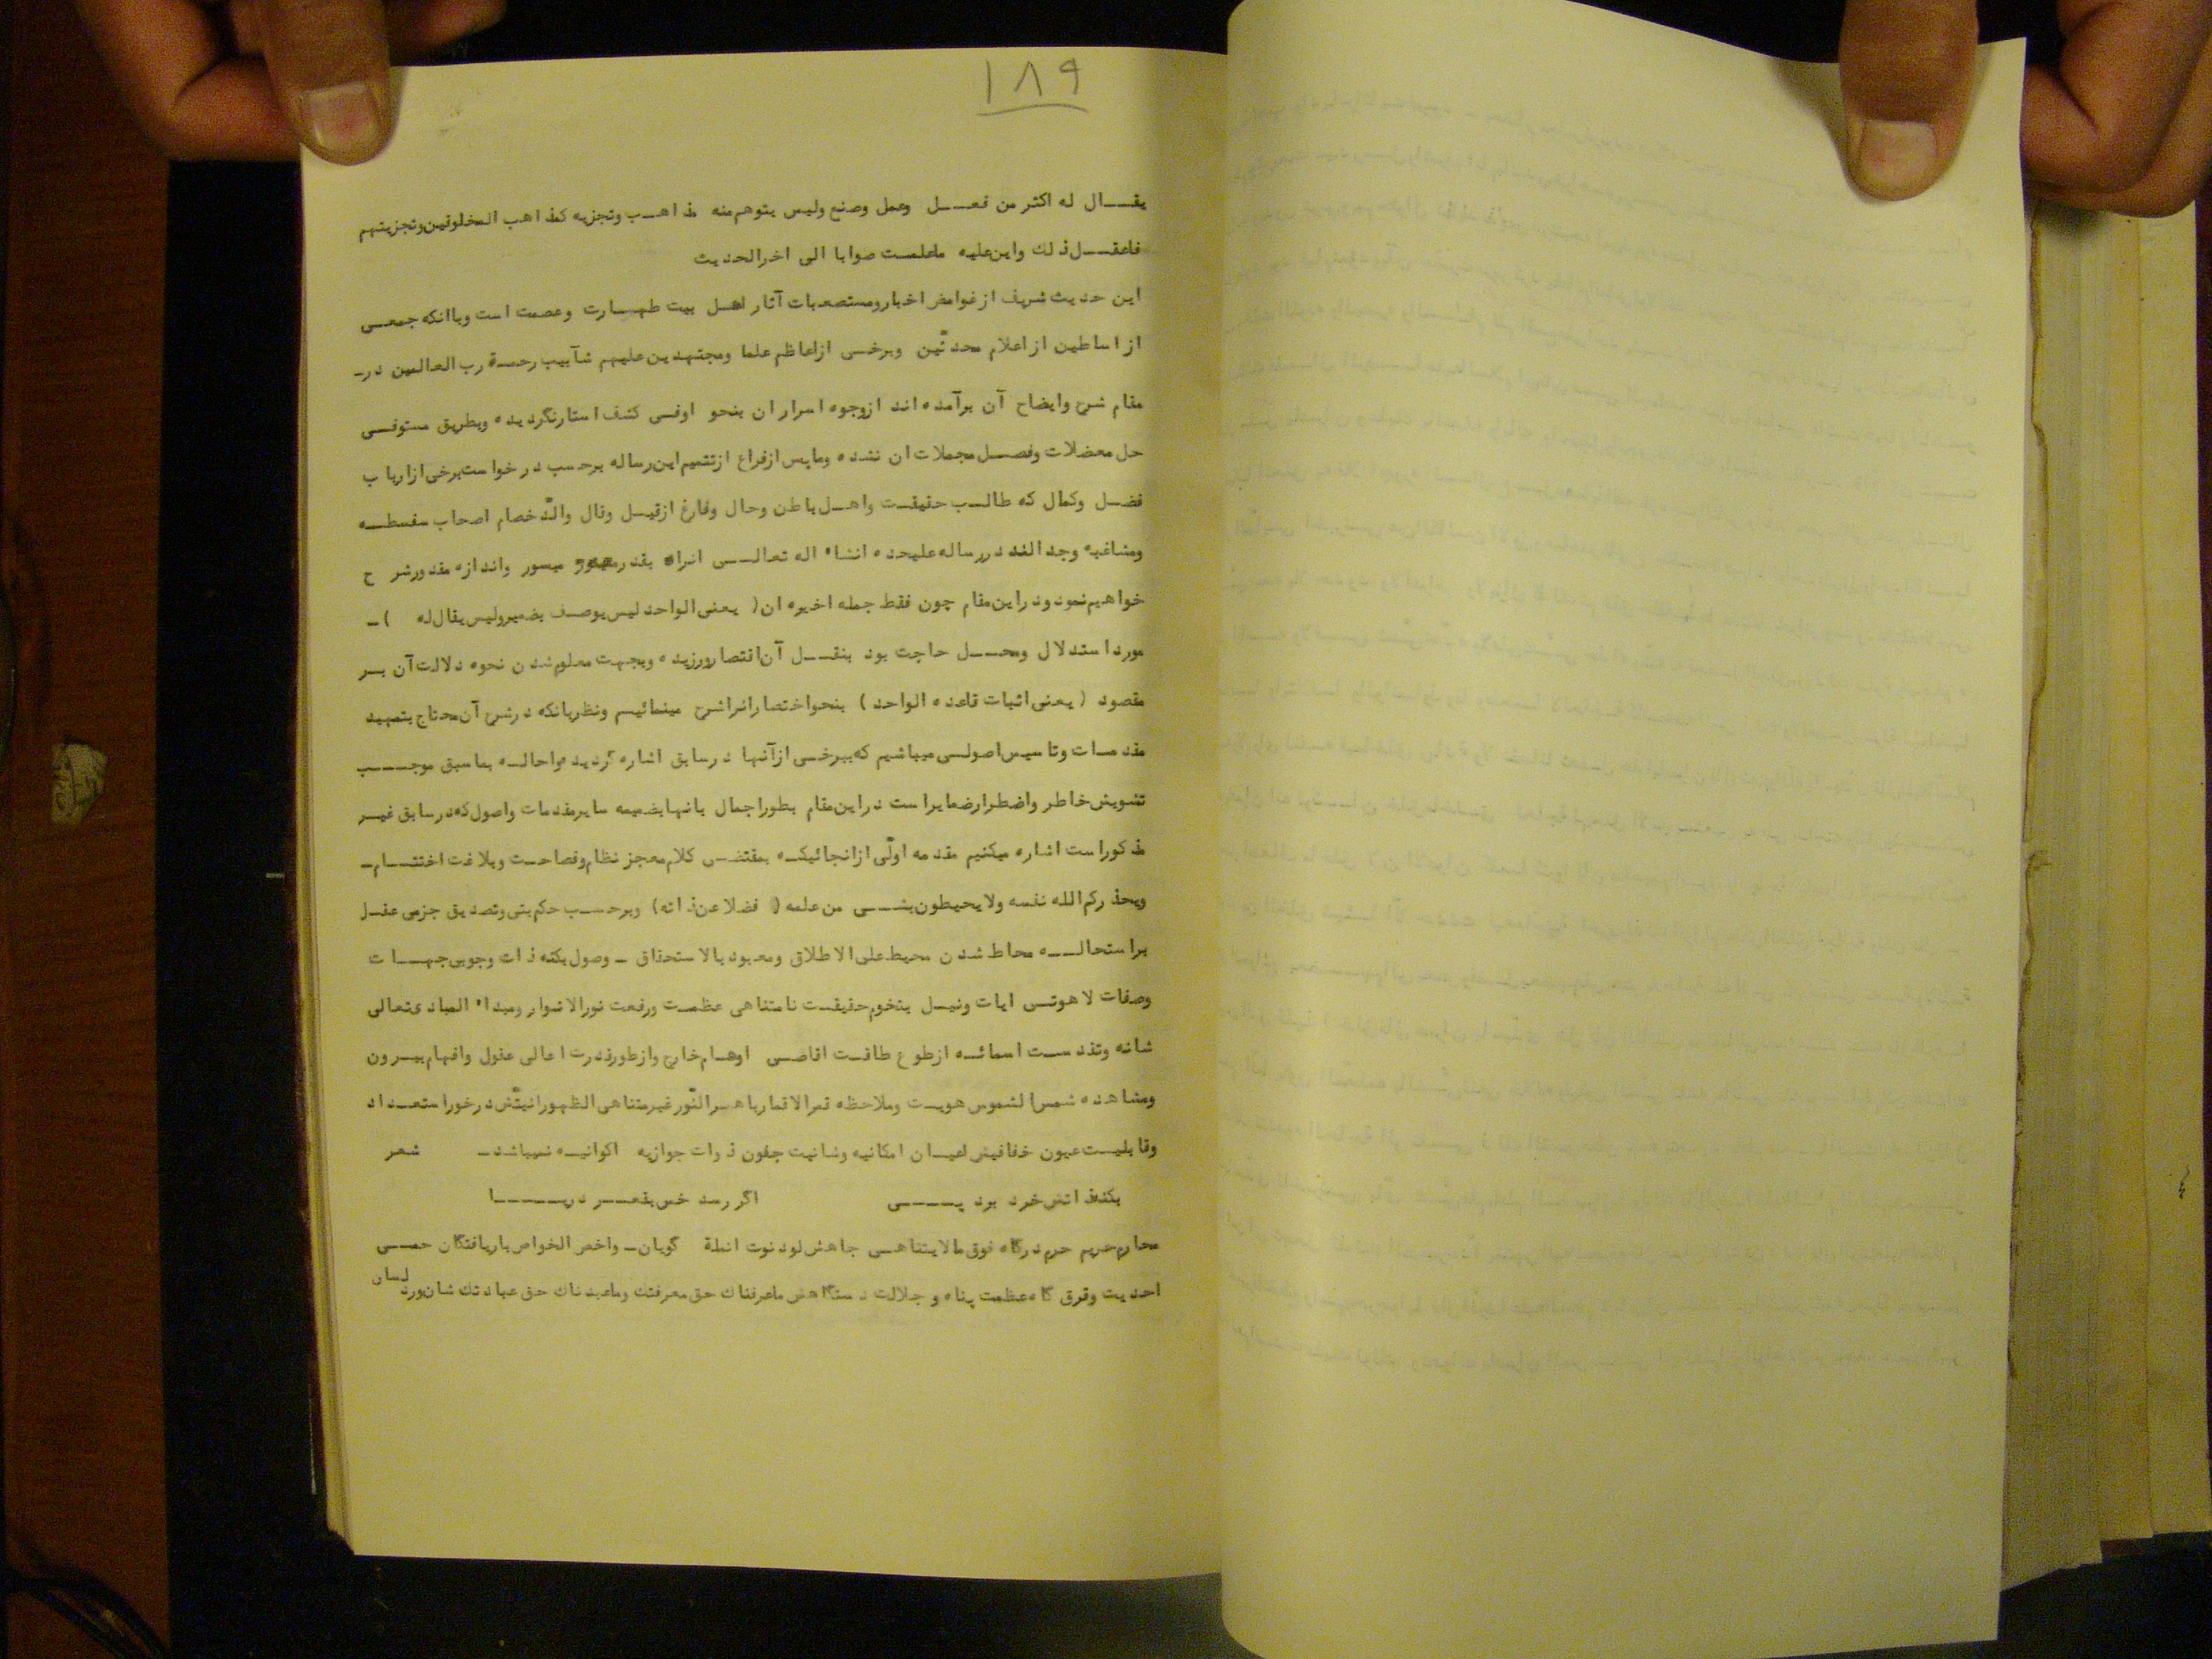 ۱۸۹
یقال له اکثر من فعل وعمل وصنع ولیس یتوهم منه مذاهب وتجزیه کمذاهب المخلوقین وتجزیتهم
فاعقل ذلك وابن علیه ماعلمت صوابا الی اخرالحدیث
این حدیث شریف از غوامض اخبار ومستصعبات آثار اهل بیت طهارت وعصمت است وباانکه جمعی
از اساطین از اعلام محدثّین وبرخی ازاعاظم علما ومجتهدین علیهم شآبیب رحمة رب العالمین در-
مقام شرح وایضاح آن برآمده اند ازوجوه اسرار ان بنحو اوفی کشف استارنگردیده وبطریق مستوفی
حل معضلات وفصل مجملات ان نشده ومابس ازفراغ ازتتمیم این رساله برحسب درخواست برخی ازارباب
فضل وکمال که طالب حقیقت واهل باطن وحال وفارغ ازقیل وقال والدّ خصام اصحاب سفسطه
ومشاغبه وجد النند دررساله علیحده انشاء اله تعالی انراه بقدر میسور واندازه مقدورشرح
خواهیم نمود ودراین مقام چون فقط جمله اخیره ان ( یعنی الواحد لیس یوصف بضمیرولیس یقال له ) -
مورد استدلال ومحل حاجت بود بنقل آن اقتصارورزیده وبجهت معلوم شدن نحوه دلالت آن بر
مقصود ( یعنی اثبات قاعده الواحد ) بنحواختصارانراشرح مینمائیم ونظربانکه درشرح آن محتاج بتمهید
مقدمات وتاسیس اصولی میباشیم که ببرخی ازآنها درسابق اشاره گردید واحاله بماسبق موجب
تشویش خاطر واضطرارضمایراست دراین مقام بطوراجمال بانهابضمیمه سایرمقدمات واصول که درسابق غیر
مذکوراست اشاره میکنیم مقدمه اولّی ازانجائیکه بمقتضی کلام معجز نظام وفصاحت وبلاغت اختتام-
ویحذرکم الله نفسه ولایحیطون بشی من علمه ( فضلا عن ذاته ) وبرحسب حکم بتی وتصدیق جزمی عقل
براستحاله محاط شدن محیط علی الاطلاق ومعبود بالاستحقاق - وصول بکنه ذات وجوبی جهات
وصفات لاهوتی ایات ونیل بتخوم حقیقت نامتناهی عظمت ورفعت نورالانوار ومبداء المبادی تعالی
شانه وتقدست اسمائه ازطوع طاقت اقاصی اوهام خارج وازطورقدرت اعالی عقول وافهام بیرون
ومشاهده شمس الشموس هویت وملاحظه قمرالاقمارباهرالنّور غیرمتناهی الظهورانیتّش درخوراستعداد
وقابلیت عیون خفافیش اعیان امکانیه وشانیت جفون ذوات جوازیه اکوانیه نمیباشد - شعر
بکنه ذاتش خرد برد پی اگر رسد خس بقعر دریا
محارم حریم حرم درگاه فوق مالایتناهی جاهش لودنوت انملة گویان - واخص الخواص باریافتگان حمی
احدیت وقرق گاه عظمت پناه و جلالت دستگاهش ماعرفناك حق معرفتك وماعبدناك حق عبادتك شان ورد لسان